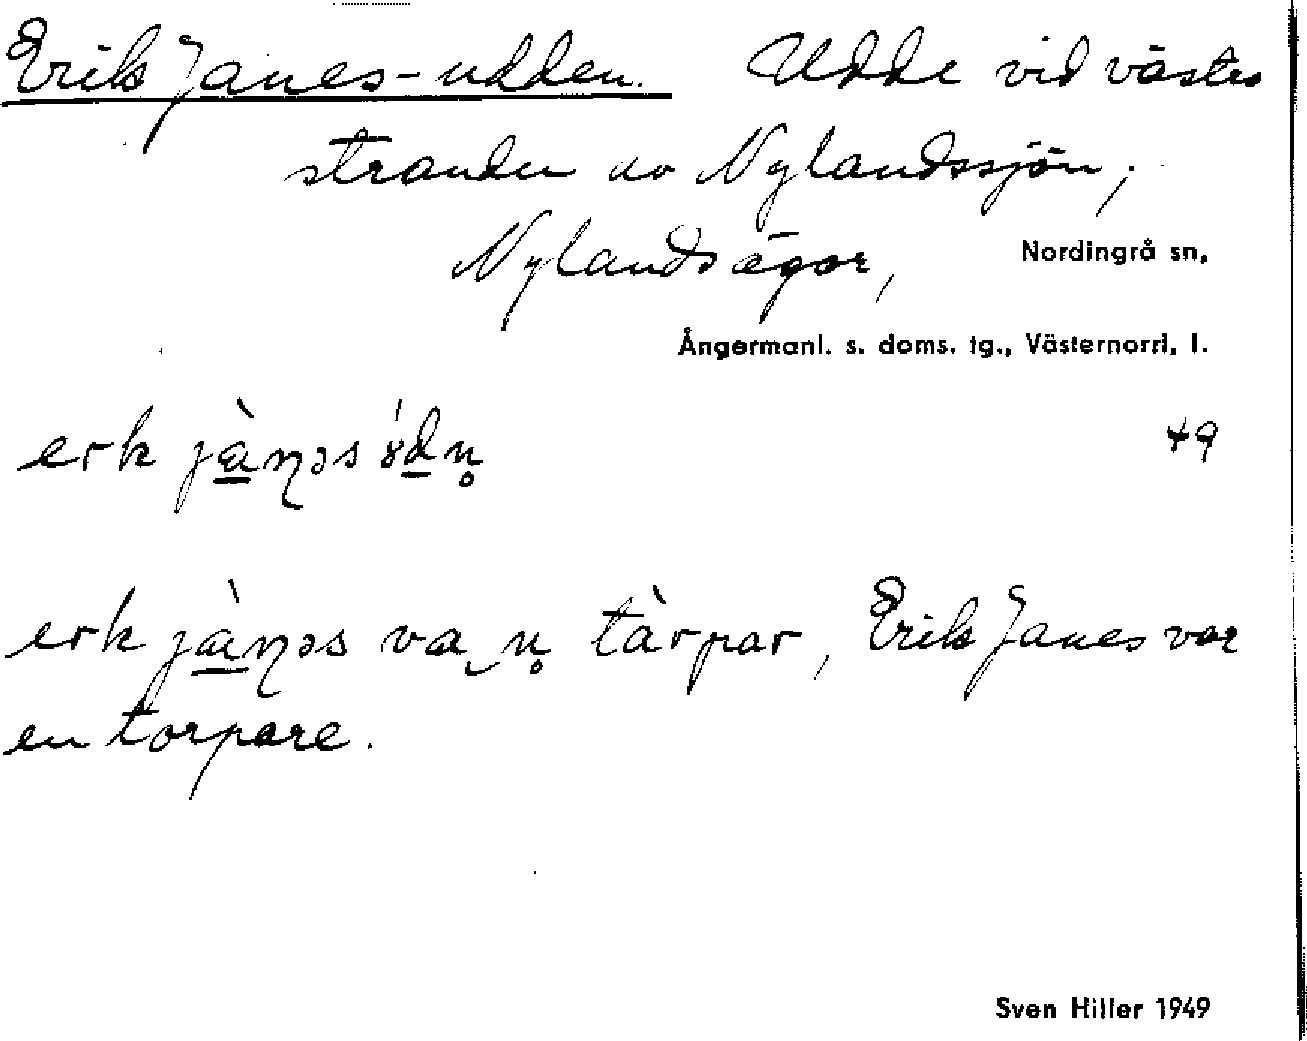 Erik Janes-udden. Udde vid västra
stranden av Nylandssjön,
Nylands ägor, Nordingrå sn,
Ångermanl. s. doms. tg., Västernorrl. l.
erk jàṉəs 49
erk jàṉəs va n̥ tàrpar, Erik Janes var
en torpare.
Sven Hiller 1949